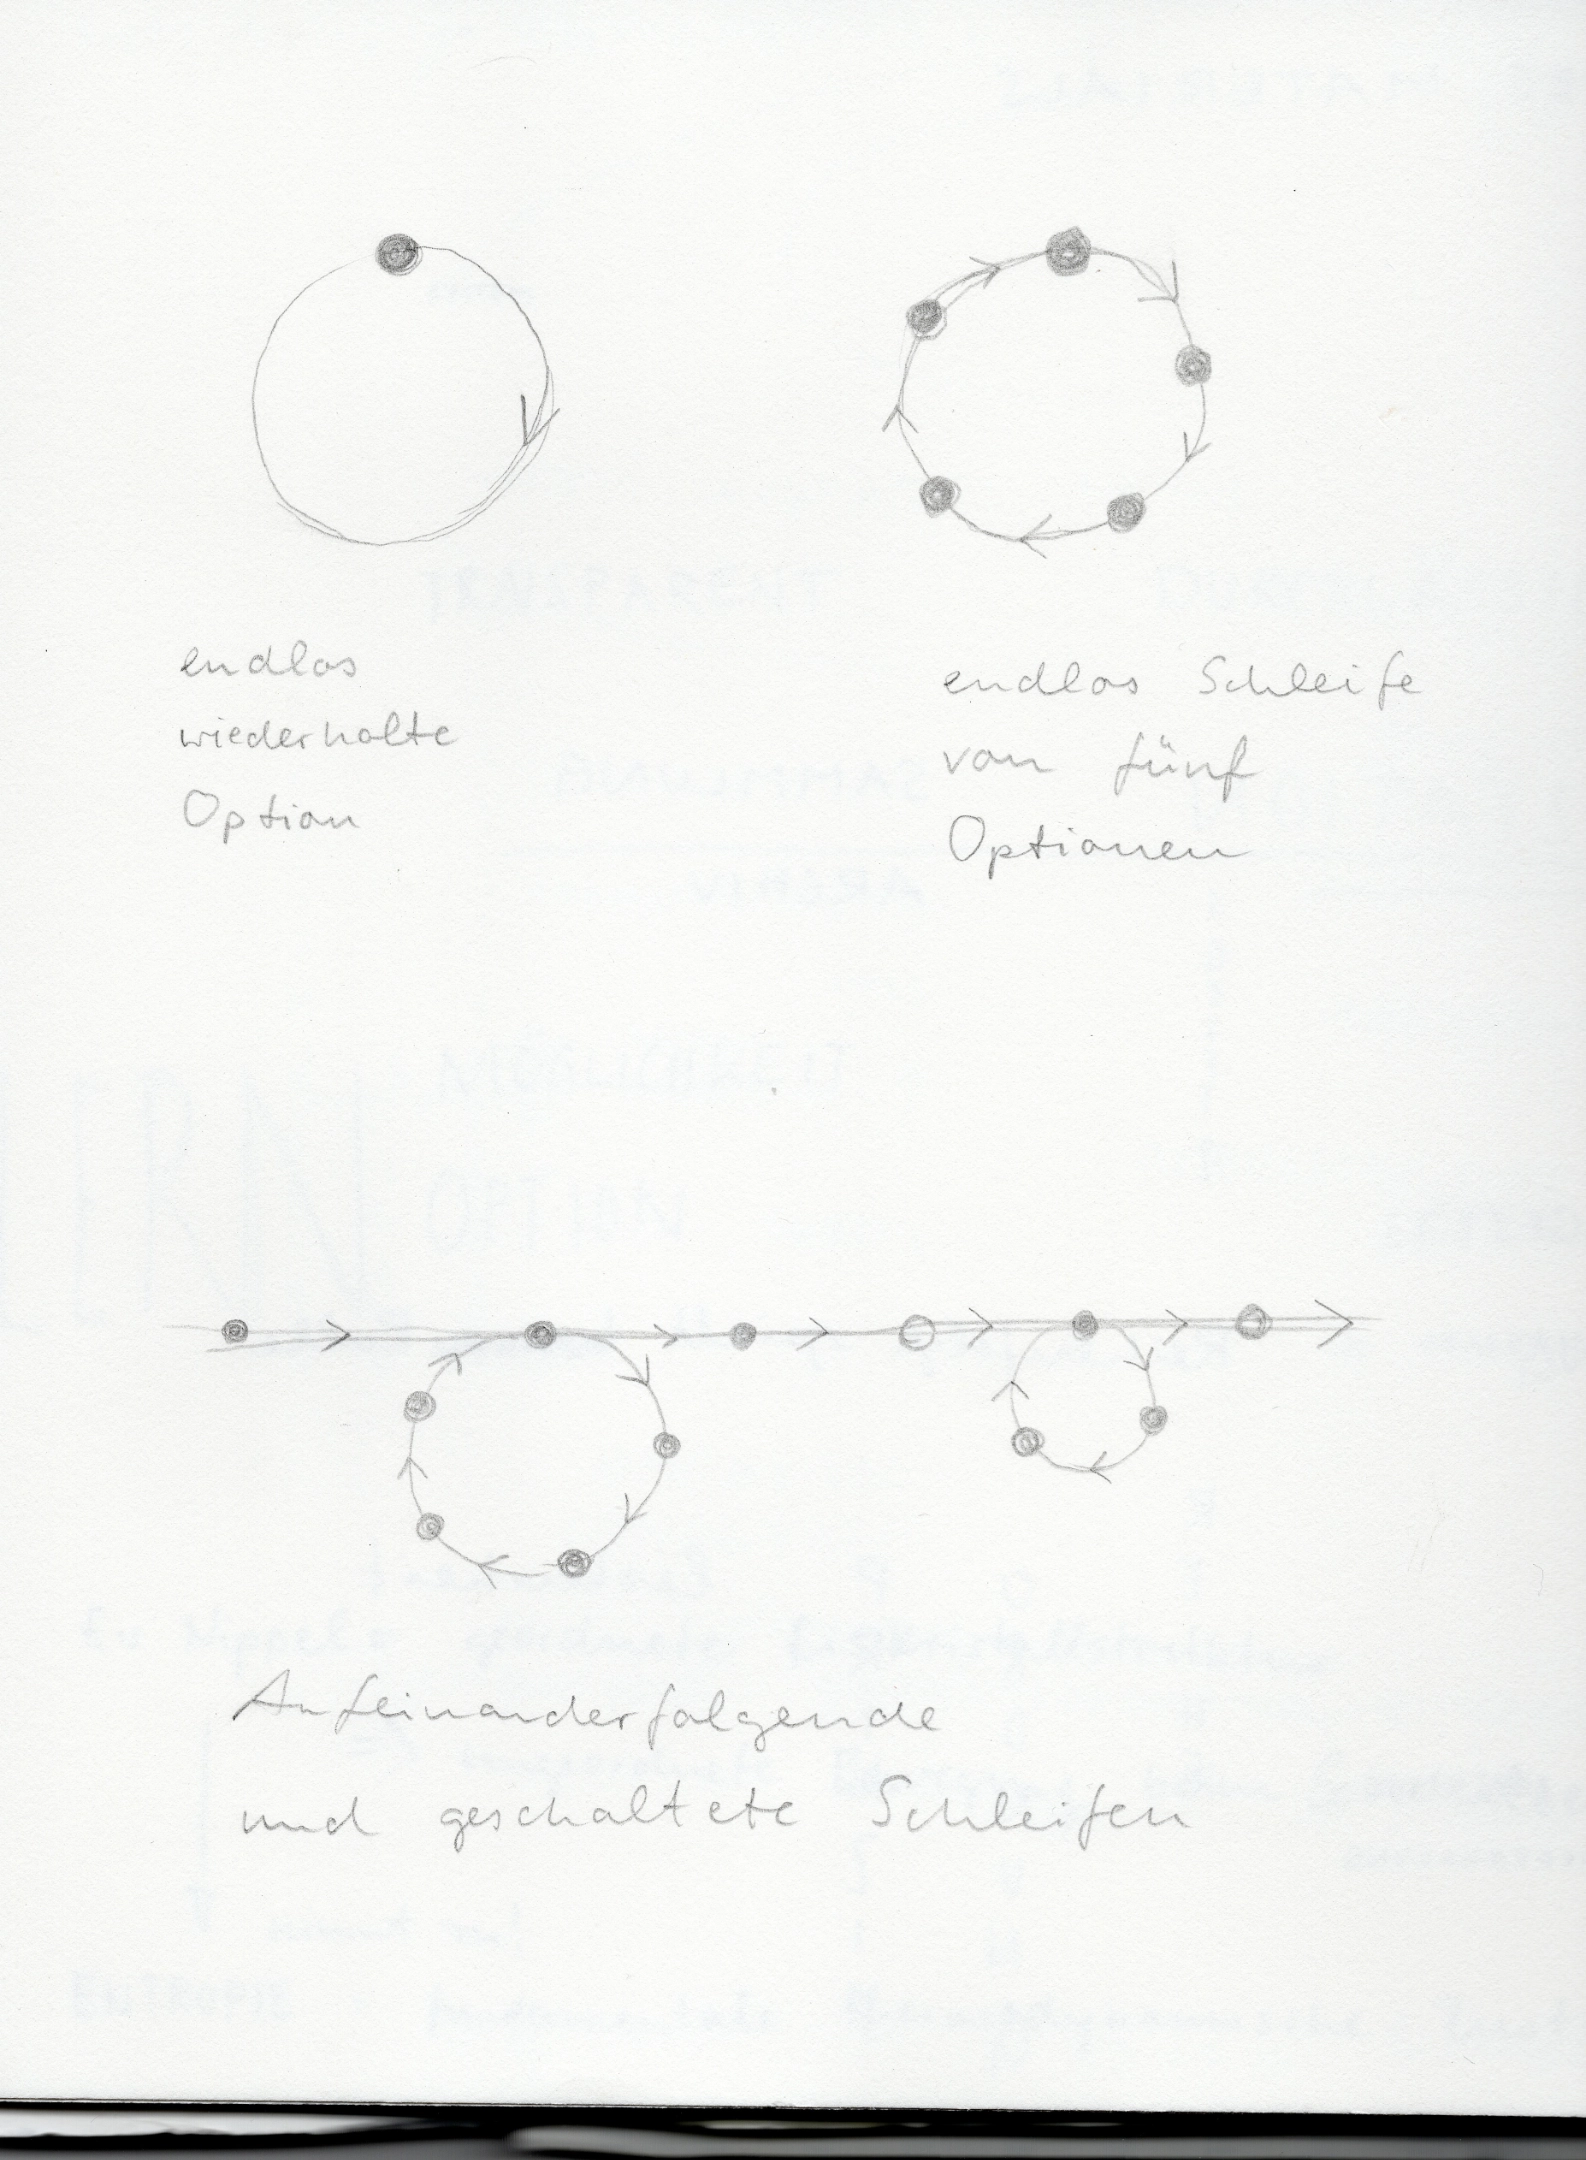 endlos
wiederholte
Option
endlos Schleife
von fünf
Optionen
Aufeinanderfolgende
und geschaltete Schleifen